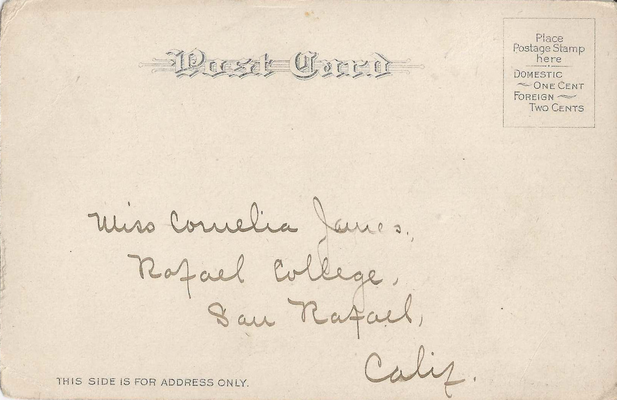 Post Card
Place
Postage Stamp
here
DOMESTIC
ONE CENT
FOREIGN
TWO CENTS
Miss Cornelia Janes,
Rafael College,
San Rafael,
Calif.
THIS SIDE IS FOR ADDRESS ONLY.